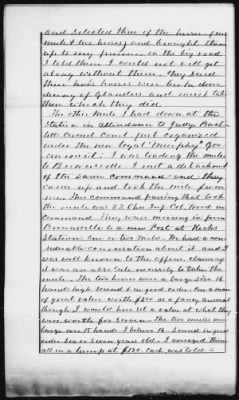 and selected three of the horses (one
mule & two horses) and brought them
up to my [house] on the big road
I told them I could not well get
along without them. They said
their horses were broke down
of Glanders and must take
them which they did
The other Mule I had down at the
Station in attendance to Judge
Court just organized
under the new loyal "Murphy" Gov
ernment. I was leading the mule
to Brownsville. I met a detachment
of the same Command and they
came up and took the mule from
me. The command passing that took
the mule was 22 Ohio Inf Col. Wood in
Command. They were moving in from
Brownsville to a new Post at Hicks
Station one or two miles. We had a con
siderable conversation about it and I
was well known to the officer claiming
it was an absolute necessity to take the
mule. The two horses were a large size 16
hands high sound & in good order. One a mare
of great value worth $200 as a fancy animal
though I would here set a value at what they
were worth for service. The two mules were
large one 15 hands I believe & sound in good
order six or seven years old. I averaged them
all in a lump at $150 each was told